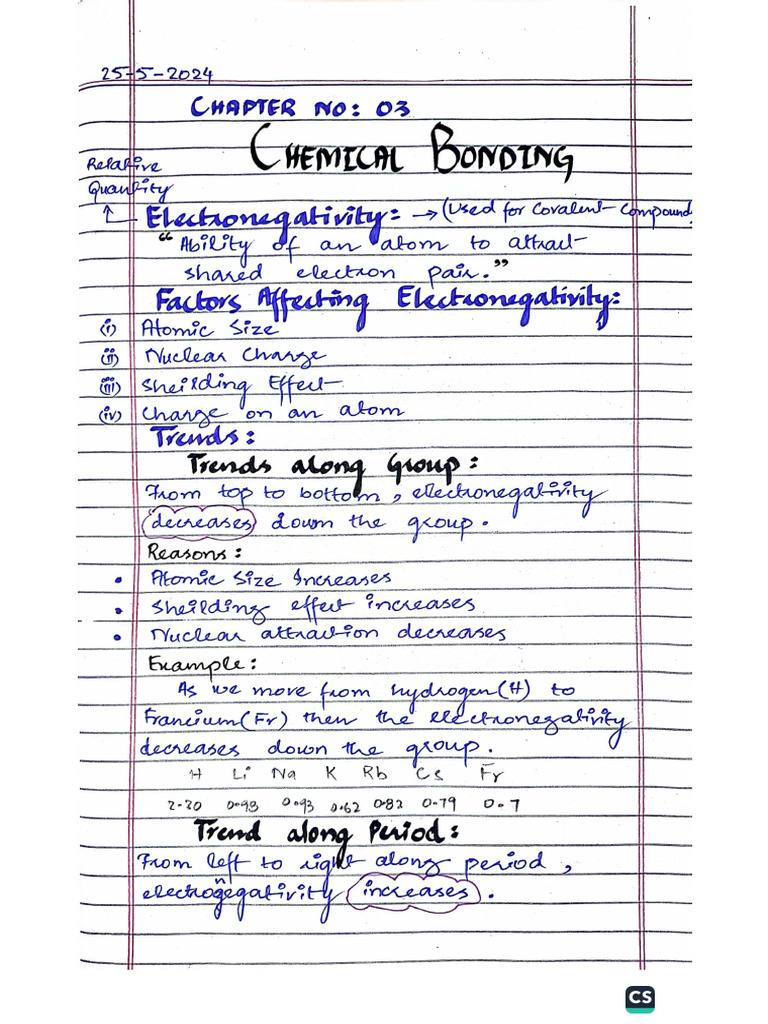 25-5-2024
CHAPTER NO: 03
CHEMICAL BONDING
Relative
Quantity
Electronegativity: → (Used for Covalent Compound)
"Ability of an atom to attract
shared electron pair."
Factors Affecting Electronegativity:
(i) Atomic Size
(ii) Nuclear Charge
(iii) Sheilding Effect
(iv) Charge on an atom
Trends:
Trends along Group:
From top to bottom, electronegativity
decreases down the group.
Reasons:
• Atomic Size Increases
• Sheilding effect increases
• Nuclear attraction decreases
Example:
As we move from hydrogen(H) to
Francium(Fr) then the electronegativity
decreases down the group.
H Li Na K Rb Cs Fr
2.20 0.98 0.93 0.62 0.82 0.79 0.7
Trend along Period:
From left to right along period,
electrogegativity increases.
n
CS